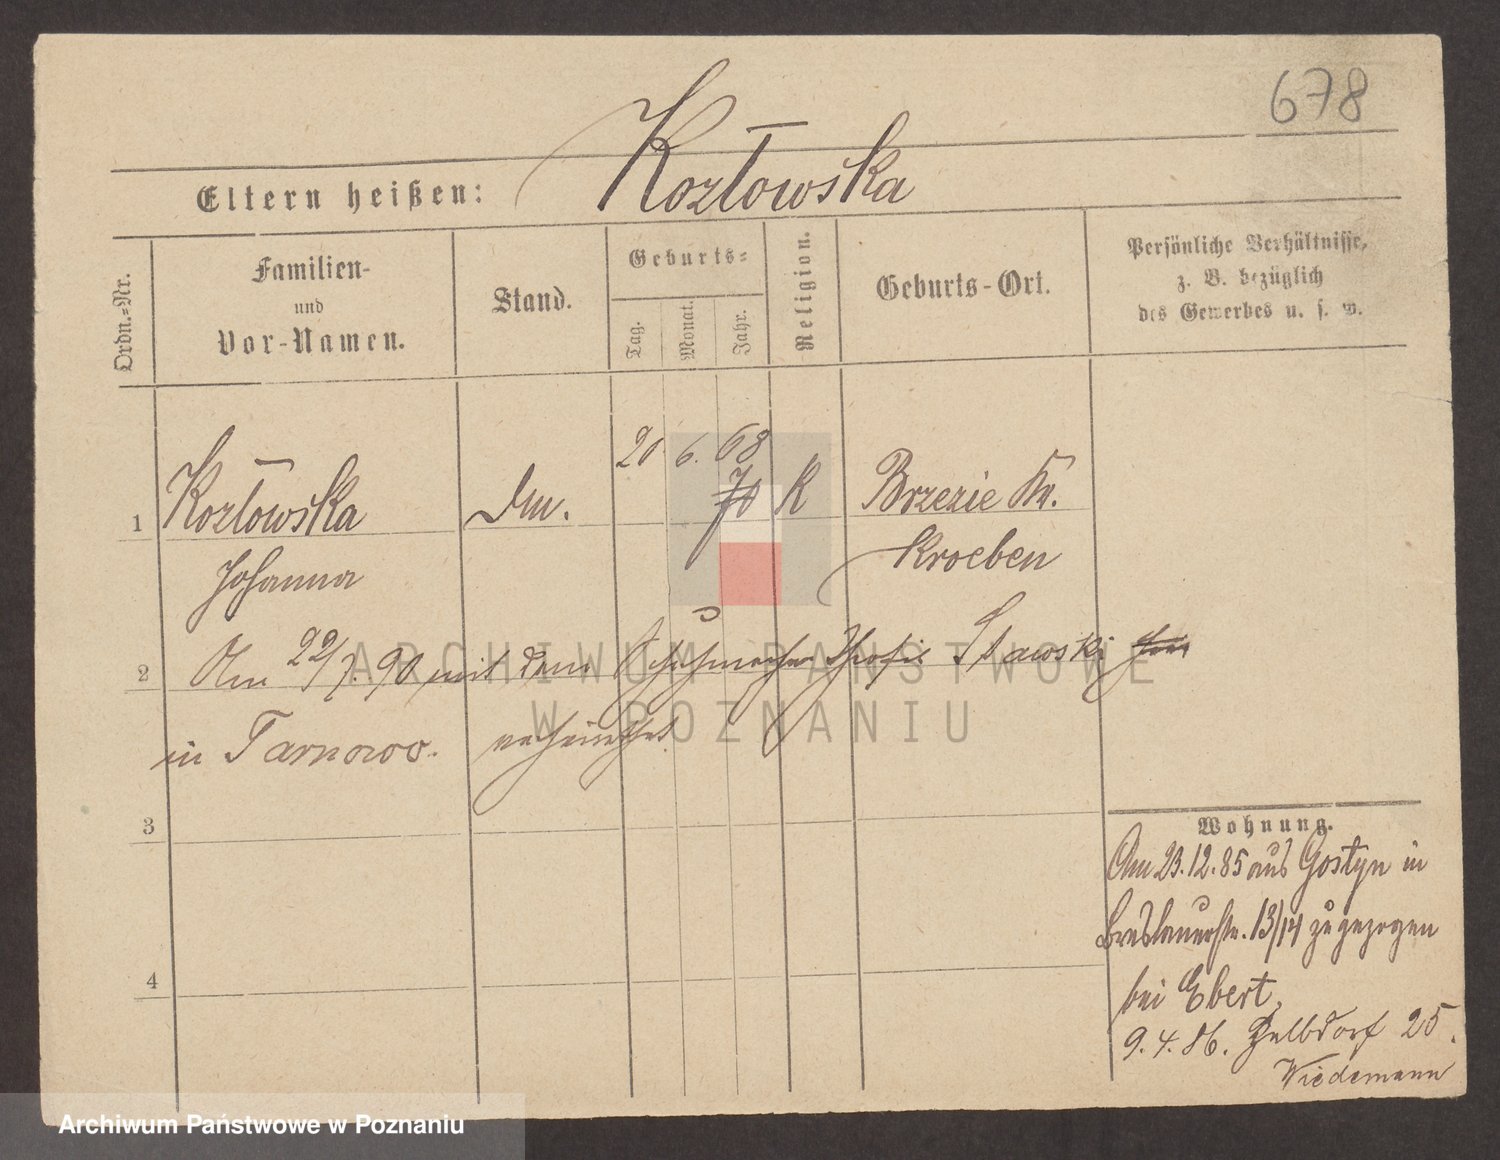 678
Kozłowska
Eltern heißen:
Ordn.=Nr.
Familien-
und
Vor-Namen.
Stand.
Geburts=
Tag.
Monat.
Jahr.
Religion.
Geburts-Ort.
Persönliche Verhältnisse,
z. B. bezüglich
des Gewerbes u. s. w.
20 6. 68
1 Kozłowska 70 K Brzezie Kr.
Johanna Kroeben
2 Am 22/7. 90 mit dem Schuhmacher Theofil Stawski
in Tarnowo. verheirathet.
3
4
Wohnung.
Am 23.12.85 aus Gostyn in
Breslauerstr. 13/14 zugezogen
bei Ebert,
9.4.86. Halbdorf 25.
Wiedemann
ARCHIWUM PAŃSTWOWE
W POZNANIU
Archiwum Państwowe w Poznaniu